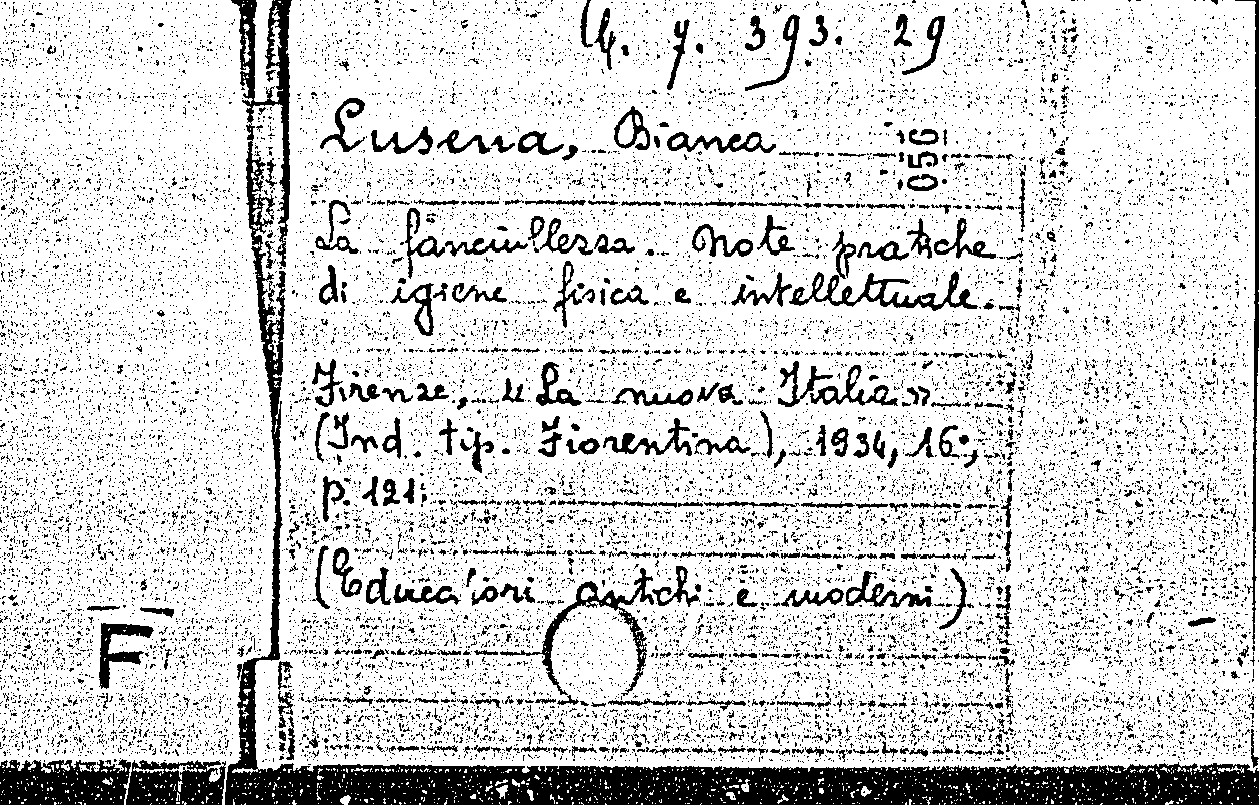 4. 7. 393. 29
Lusena, Bianca
056
La fanciullezza. Note pratiche
di igiene fisica e intellettuale.
Firenze, "La nuova Italia"
(Ind. tip. Fiorentina), 1934, 16°,
p. 121.
(Educatori antichi e moderni)
F